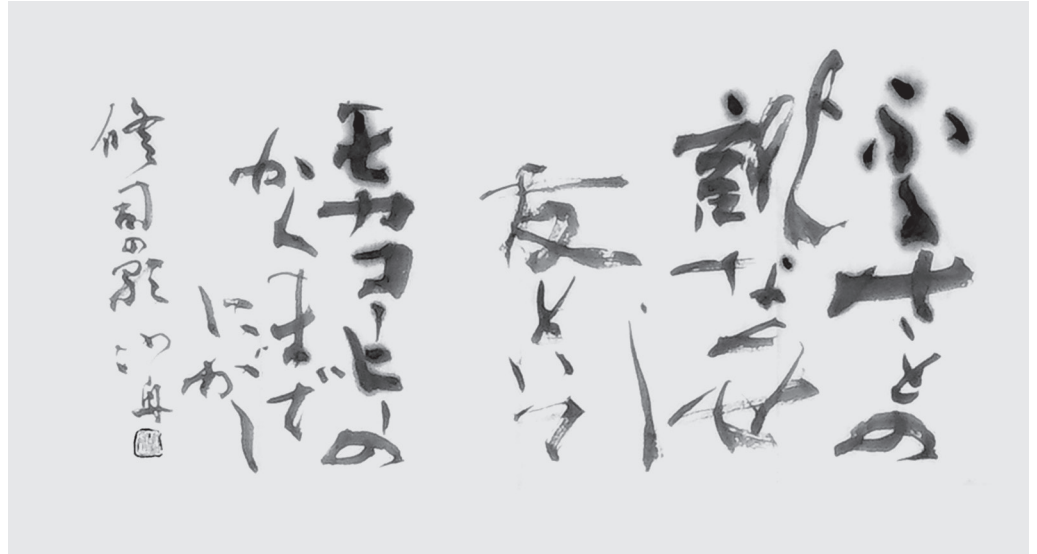 ふるさとの
訛なくせ
し
友といて
モカコーヒーの
かくまで
にがし
修司の歌